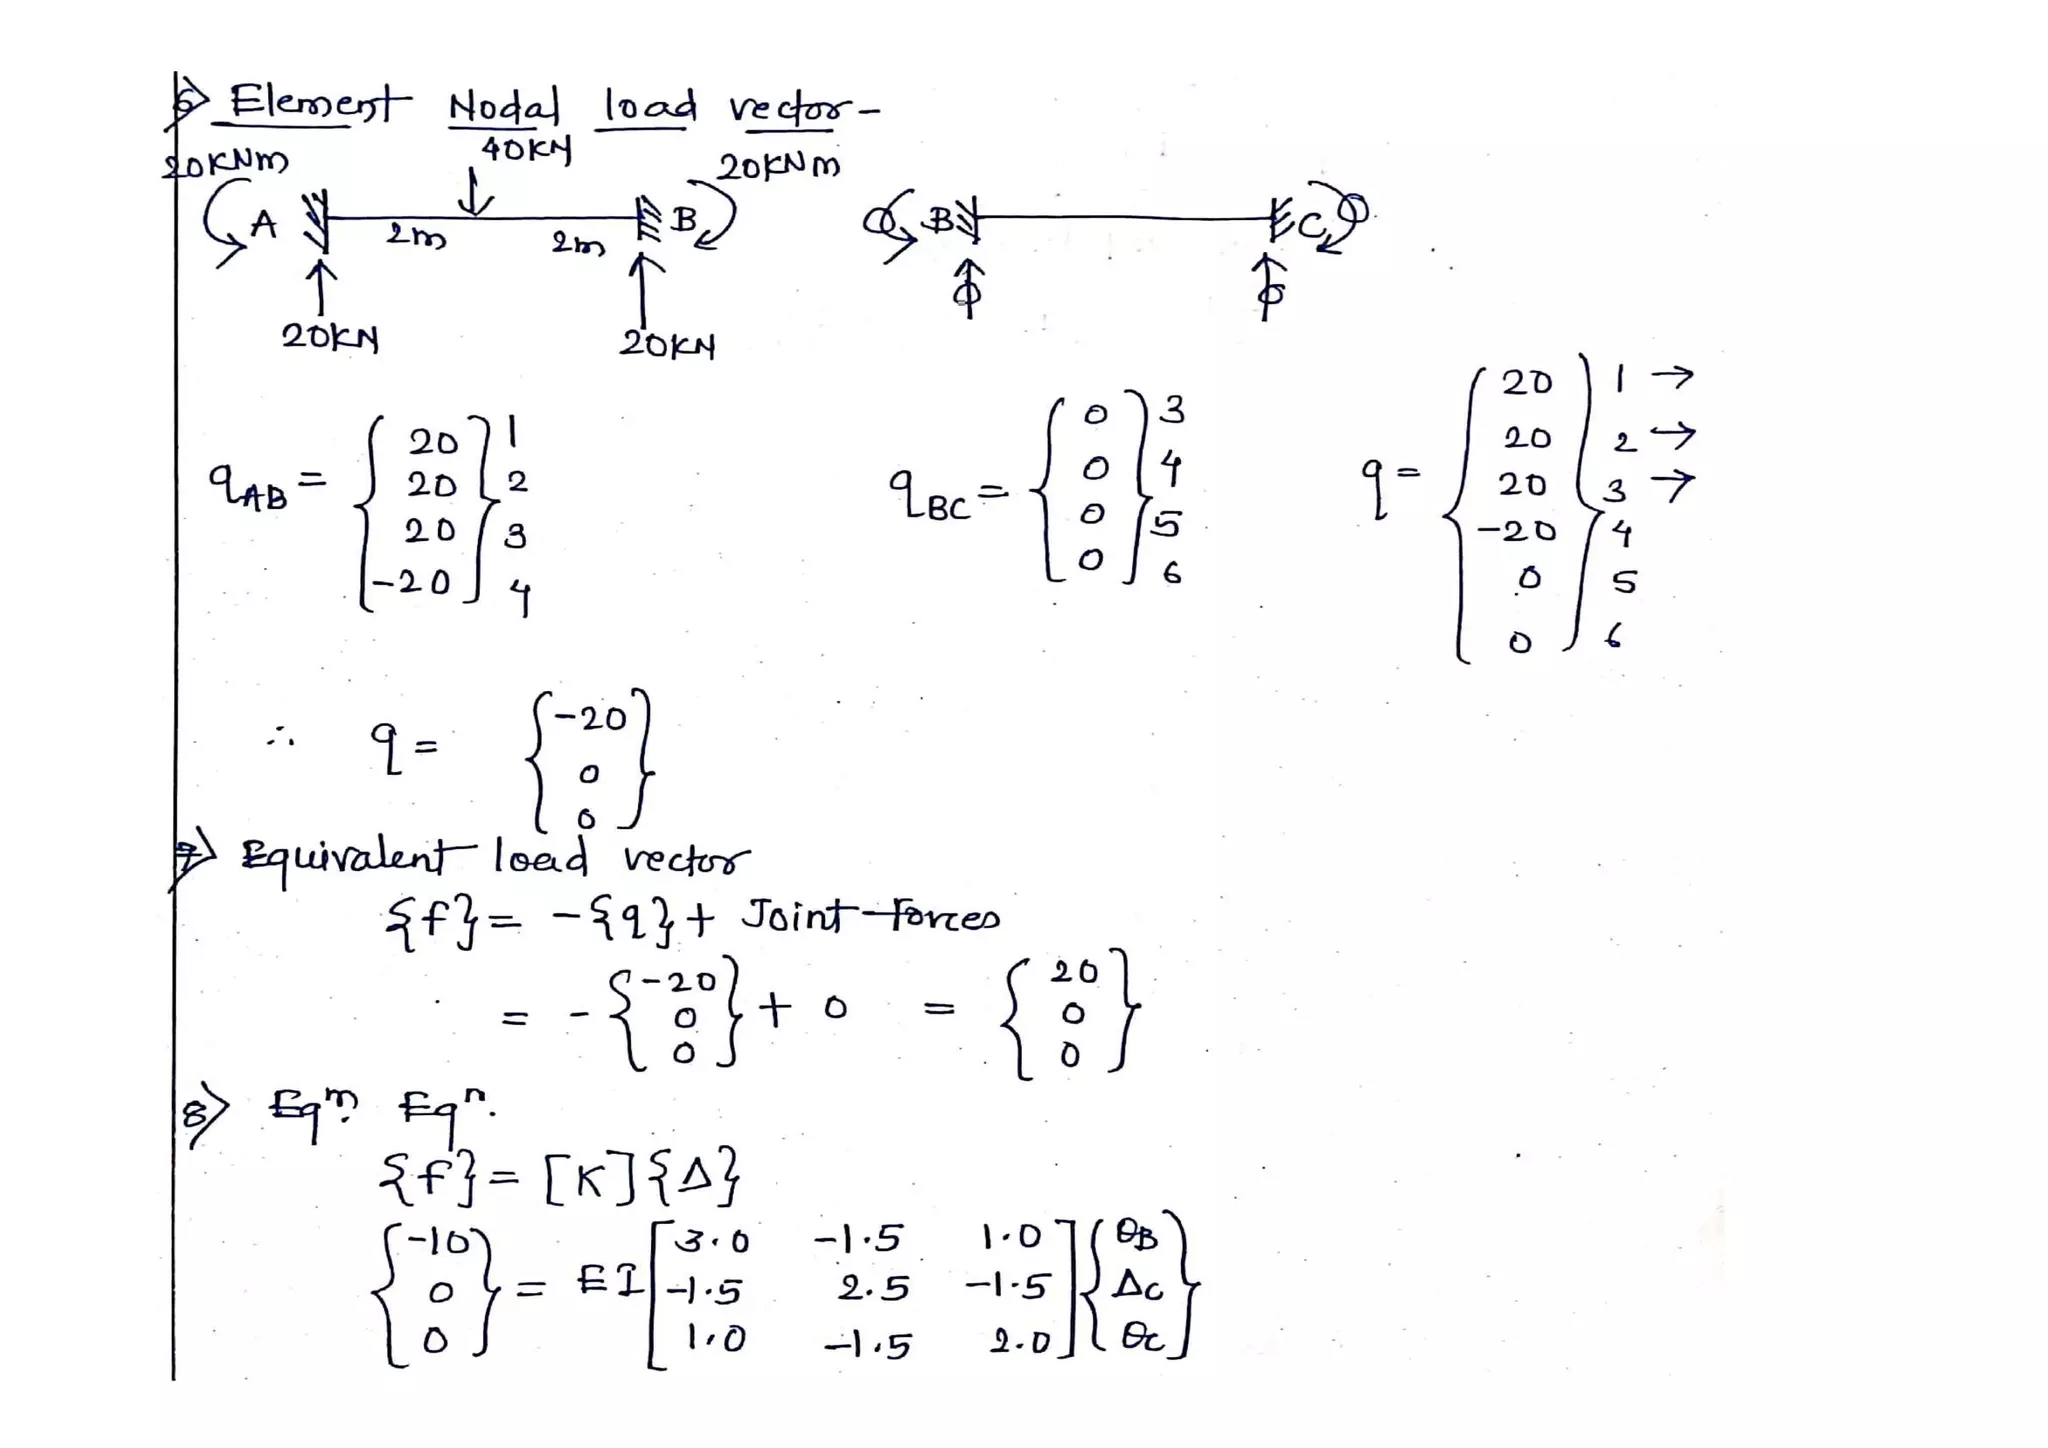 6> Element Nodal load vector-
20KNm 40KN 20KNm
A 2m 2m B B C
20KN 20KN
qAB = { 20 20 20 -20 } 1 2 3 4
qBC = { 0 0 0 0 } 3 4 5 6
q = { 20 20 20 -20 0 0 } 1 → 2 → 3 → 4 5 6
∴ q = { -20 0 0 }
7> Equivalent load vector
{f} = -{q} + Joint forces
= - { -20 0 0 } + 0 = { 20 0 0 }
8> Eqm. Eqn.
{f} = [K]{Δ}
{ -10 0 0 } = EI [ 3.0 -1.5 1.0
-1.5 2.5 -1.5
1.0 -1.5 2.0 ] { θB ΔC θC }